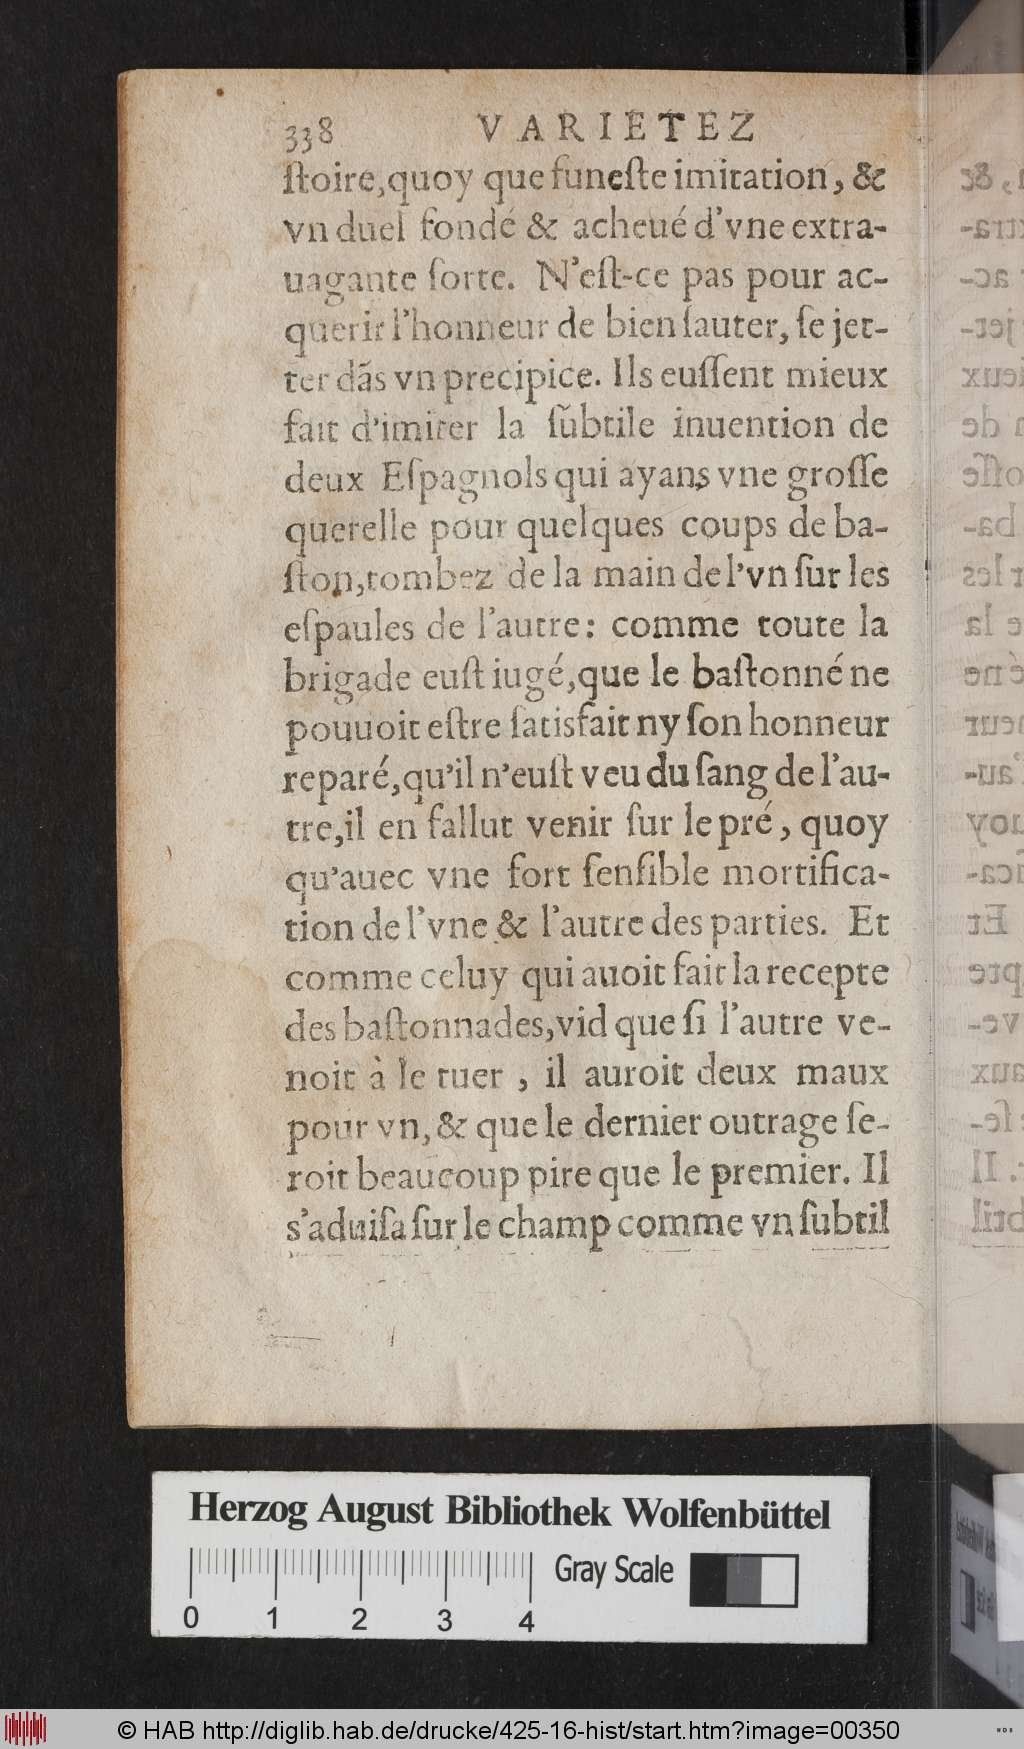 338 VARIETEZ
ſtoire, quoy que funeſte imitation, &
vn duel fondé & acheué d'vne extra-
uagante ſorte. N'eſt-ce pas pour ac-
querir l'honneur de bien ſauter, ſe jet-
ter dãs vn precipice. Ils euſſent mieux
fait d'imiter la ſubtile inuention de
deux Eſpagnols qui ayans vne groſſe
querelle pour quelques coups de ba-
ſton, tombez de la main de l'vn ſur les
eſpaules de l'autre: comme toute la
brigade euſt iugé, que le baſtonné ne
pouuoit eſtre ſatisfait ny ſon honneur
reparé, qu'il n'euſt veu du ſang de l'au-
tre, il en fallut venir ſur le pré, quoy
qu'auec vne fort ſenſible mortifica-
tion de l'vne & l'autre des parties. Et
comme celuy qui auoit fait la recepte
des baſtonnades, vid que ſi l'autre ve-
noit à le tuer, il auroit deux maux
pour vn, & que le dernier outrage ſe-
roit beaucoup pire que le premier. Il
s'aduiſa ſur le champ comme vn ſubtil
Herzog August Bibliothek Wolfenbüttel
Gray Scale
0 1 2 3 4
© HAB http://diglib.hab.de/drucke/425-16-hist/start.htm?image=00350